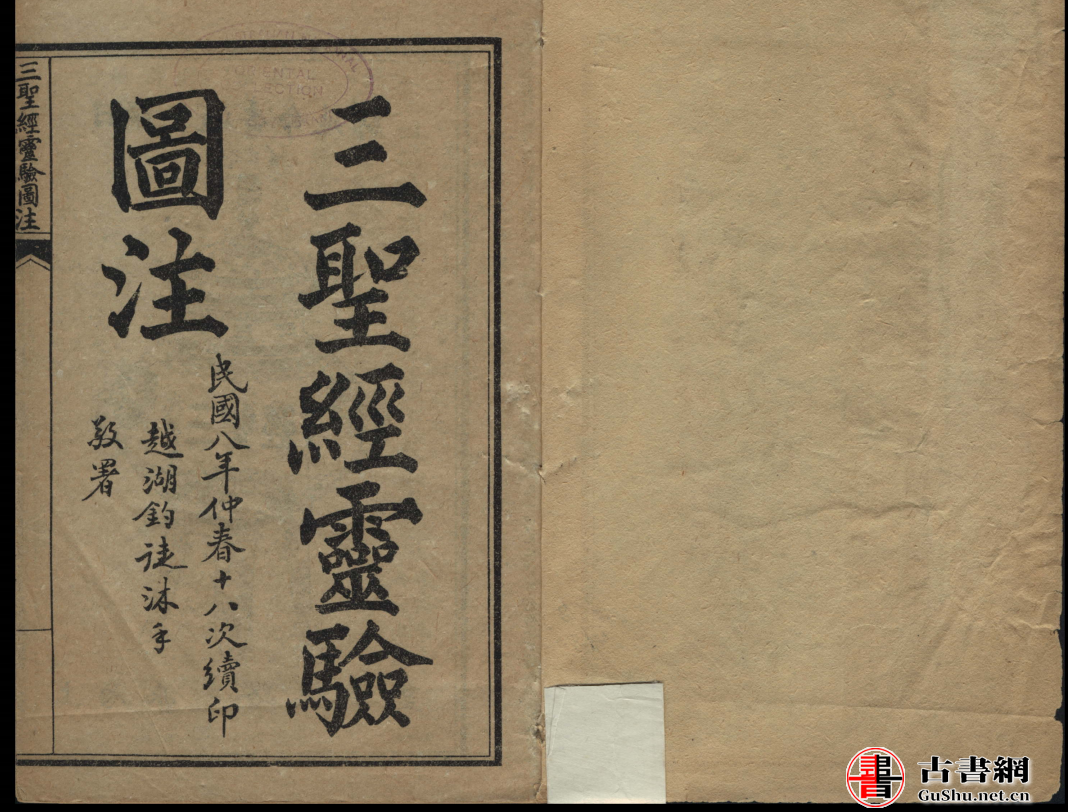 三聖經靈驗
圖注
民國八年仲春十八次續印
越湖釣徒沐手
敬署
三聖經靈驗圖注
ORIENTAL
COLLECTION
古書網
GuShu.net.cn